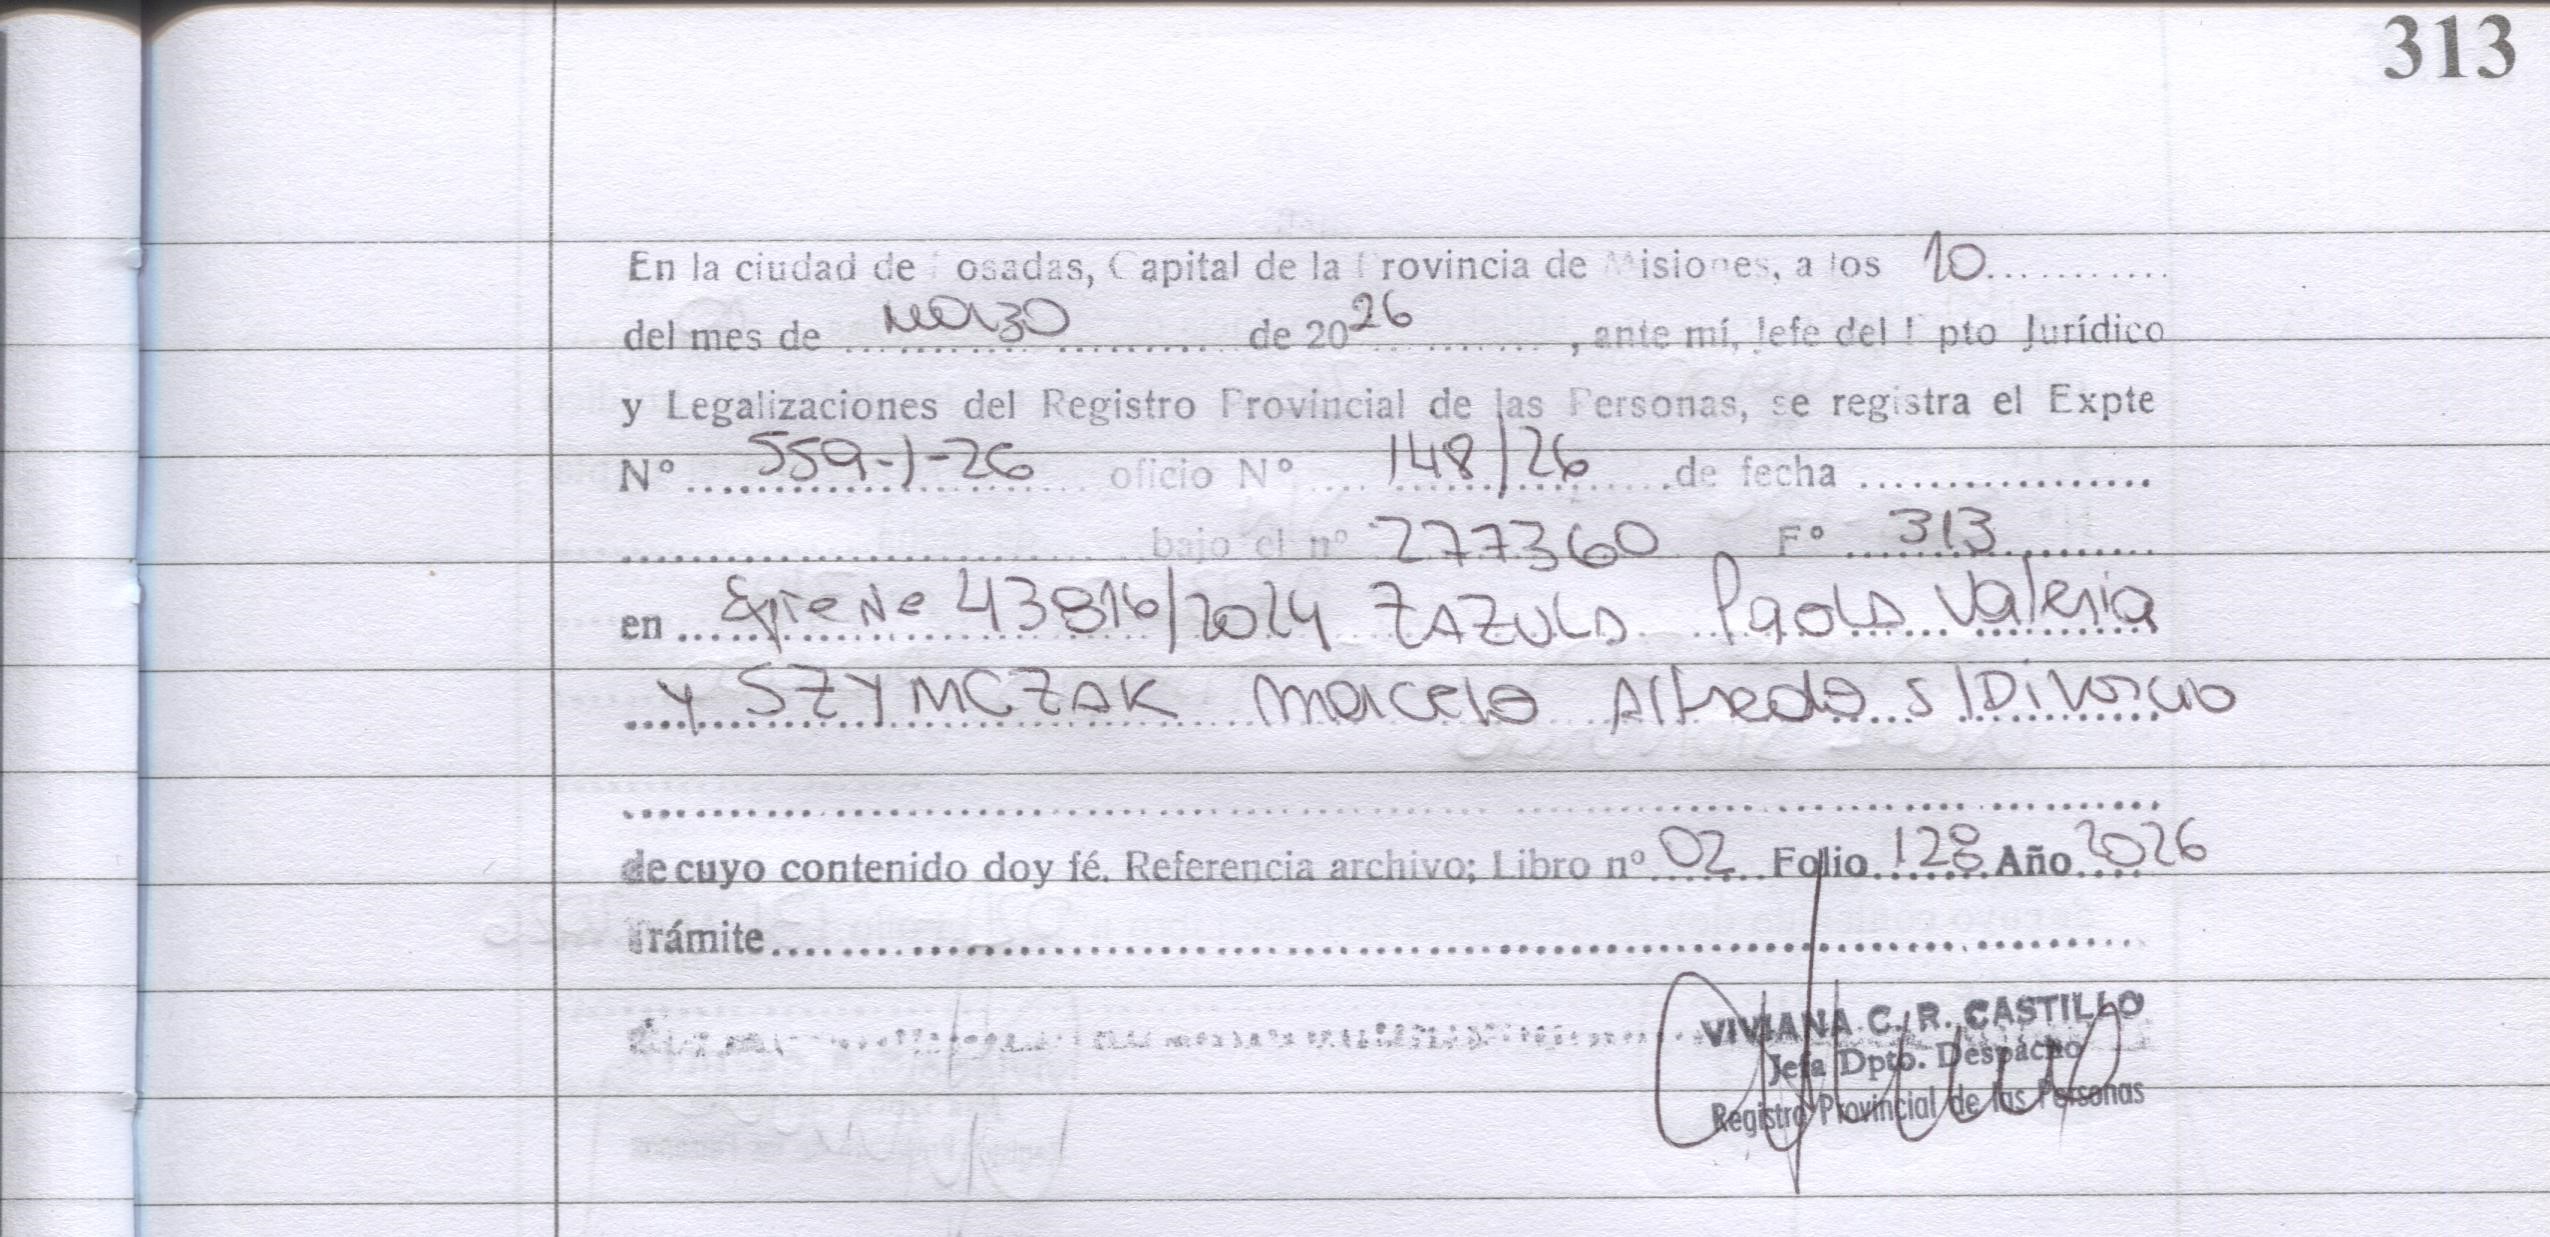 313
En la ciudad de Posadas, Capital de la Provincia de Misiones, a los 10
del mes de marzo de 2026, ante mí, Jefe del Dpto Jurídico
y Legalizaciones del Registro Provincial de las Personas, se registra el Expte
Nº 559-1-26 oficio Nº 148/26 de fecha
bajo el nº 277360 Fº 313
en Expte Nº 43816/2024 ZAZULA Paola Valeria
y SZYMCZAK Marcelo Alfredo s/Divorcio
de cuyo contenido doy fé. Referencia archivo; Libro nº 02 Folio 128 Año 2026
Trámite
VIVIANA C. R. CASTILLO
Jefa Dpto. Despacho
Registro Provincial de las Personas